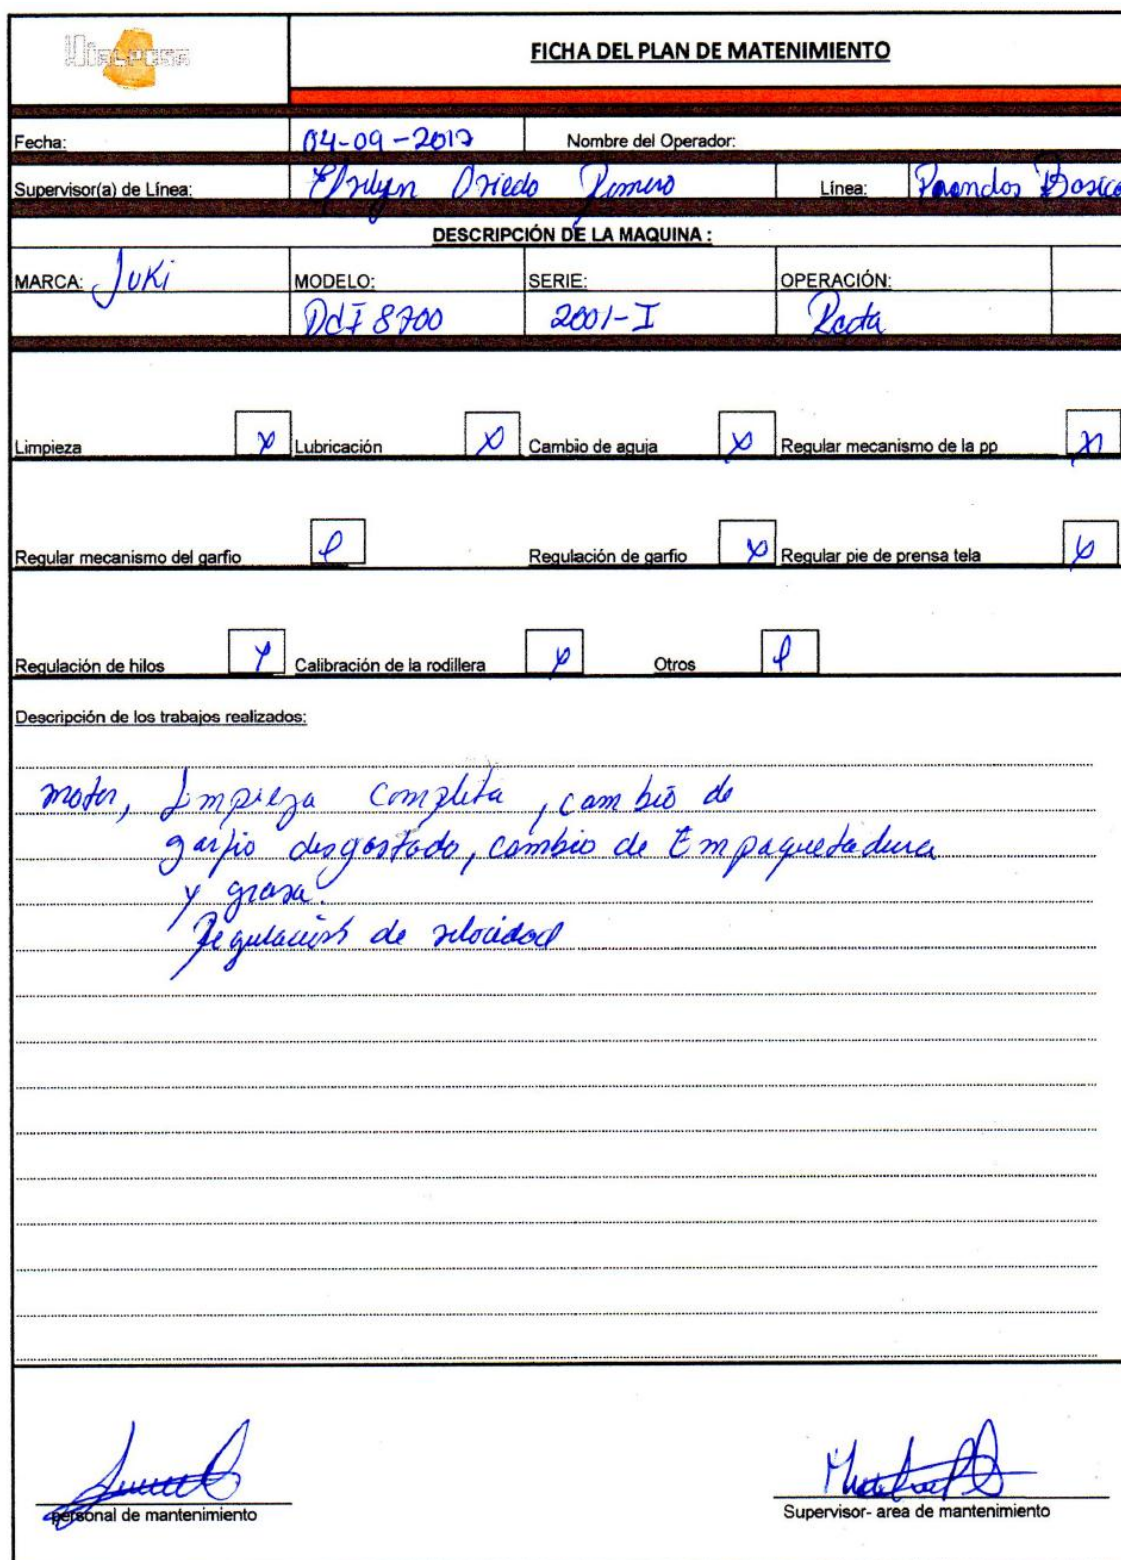 FICHA DEL PLAN DE MATENIMIENTO
Fecha: 04-09-2017 Nombre del Operador:
Supervisor(a) de Línea: Oviedo Romero Línea: Basico
DESCRIPCIÓN DE LA MAQUINA :
MARCA: Juki MODELO: SERIE: OPERACIÓN:
8700 2001-I Recta
Limpieza x Lubricación x Cambio de aguja x Regular mecanismo de la pp x
Regular mecanismo del garfio Regulación de garfio x Regular pie de prensa tela x
Regulación de hilos x Calibración de la rodillera x Otros
Descripción de los trabajos realizados:
motor, Limpieza completa, cambio de
garfio desgastado, cambio de Empaquetadura
y grasa.
Regulación de velocidad
personal de mantenimiento Supervisor- area de mantenimiento